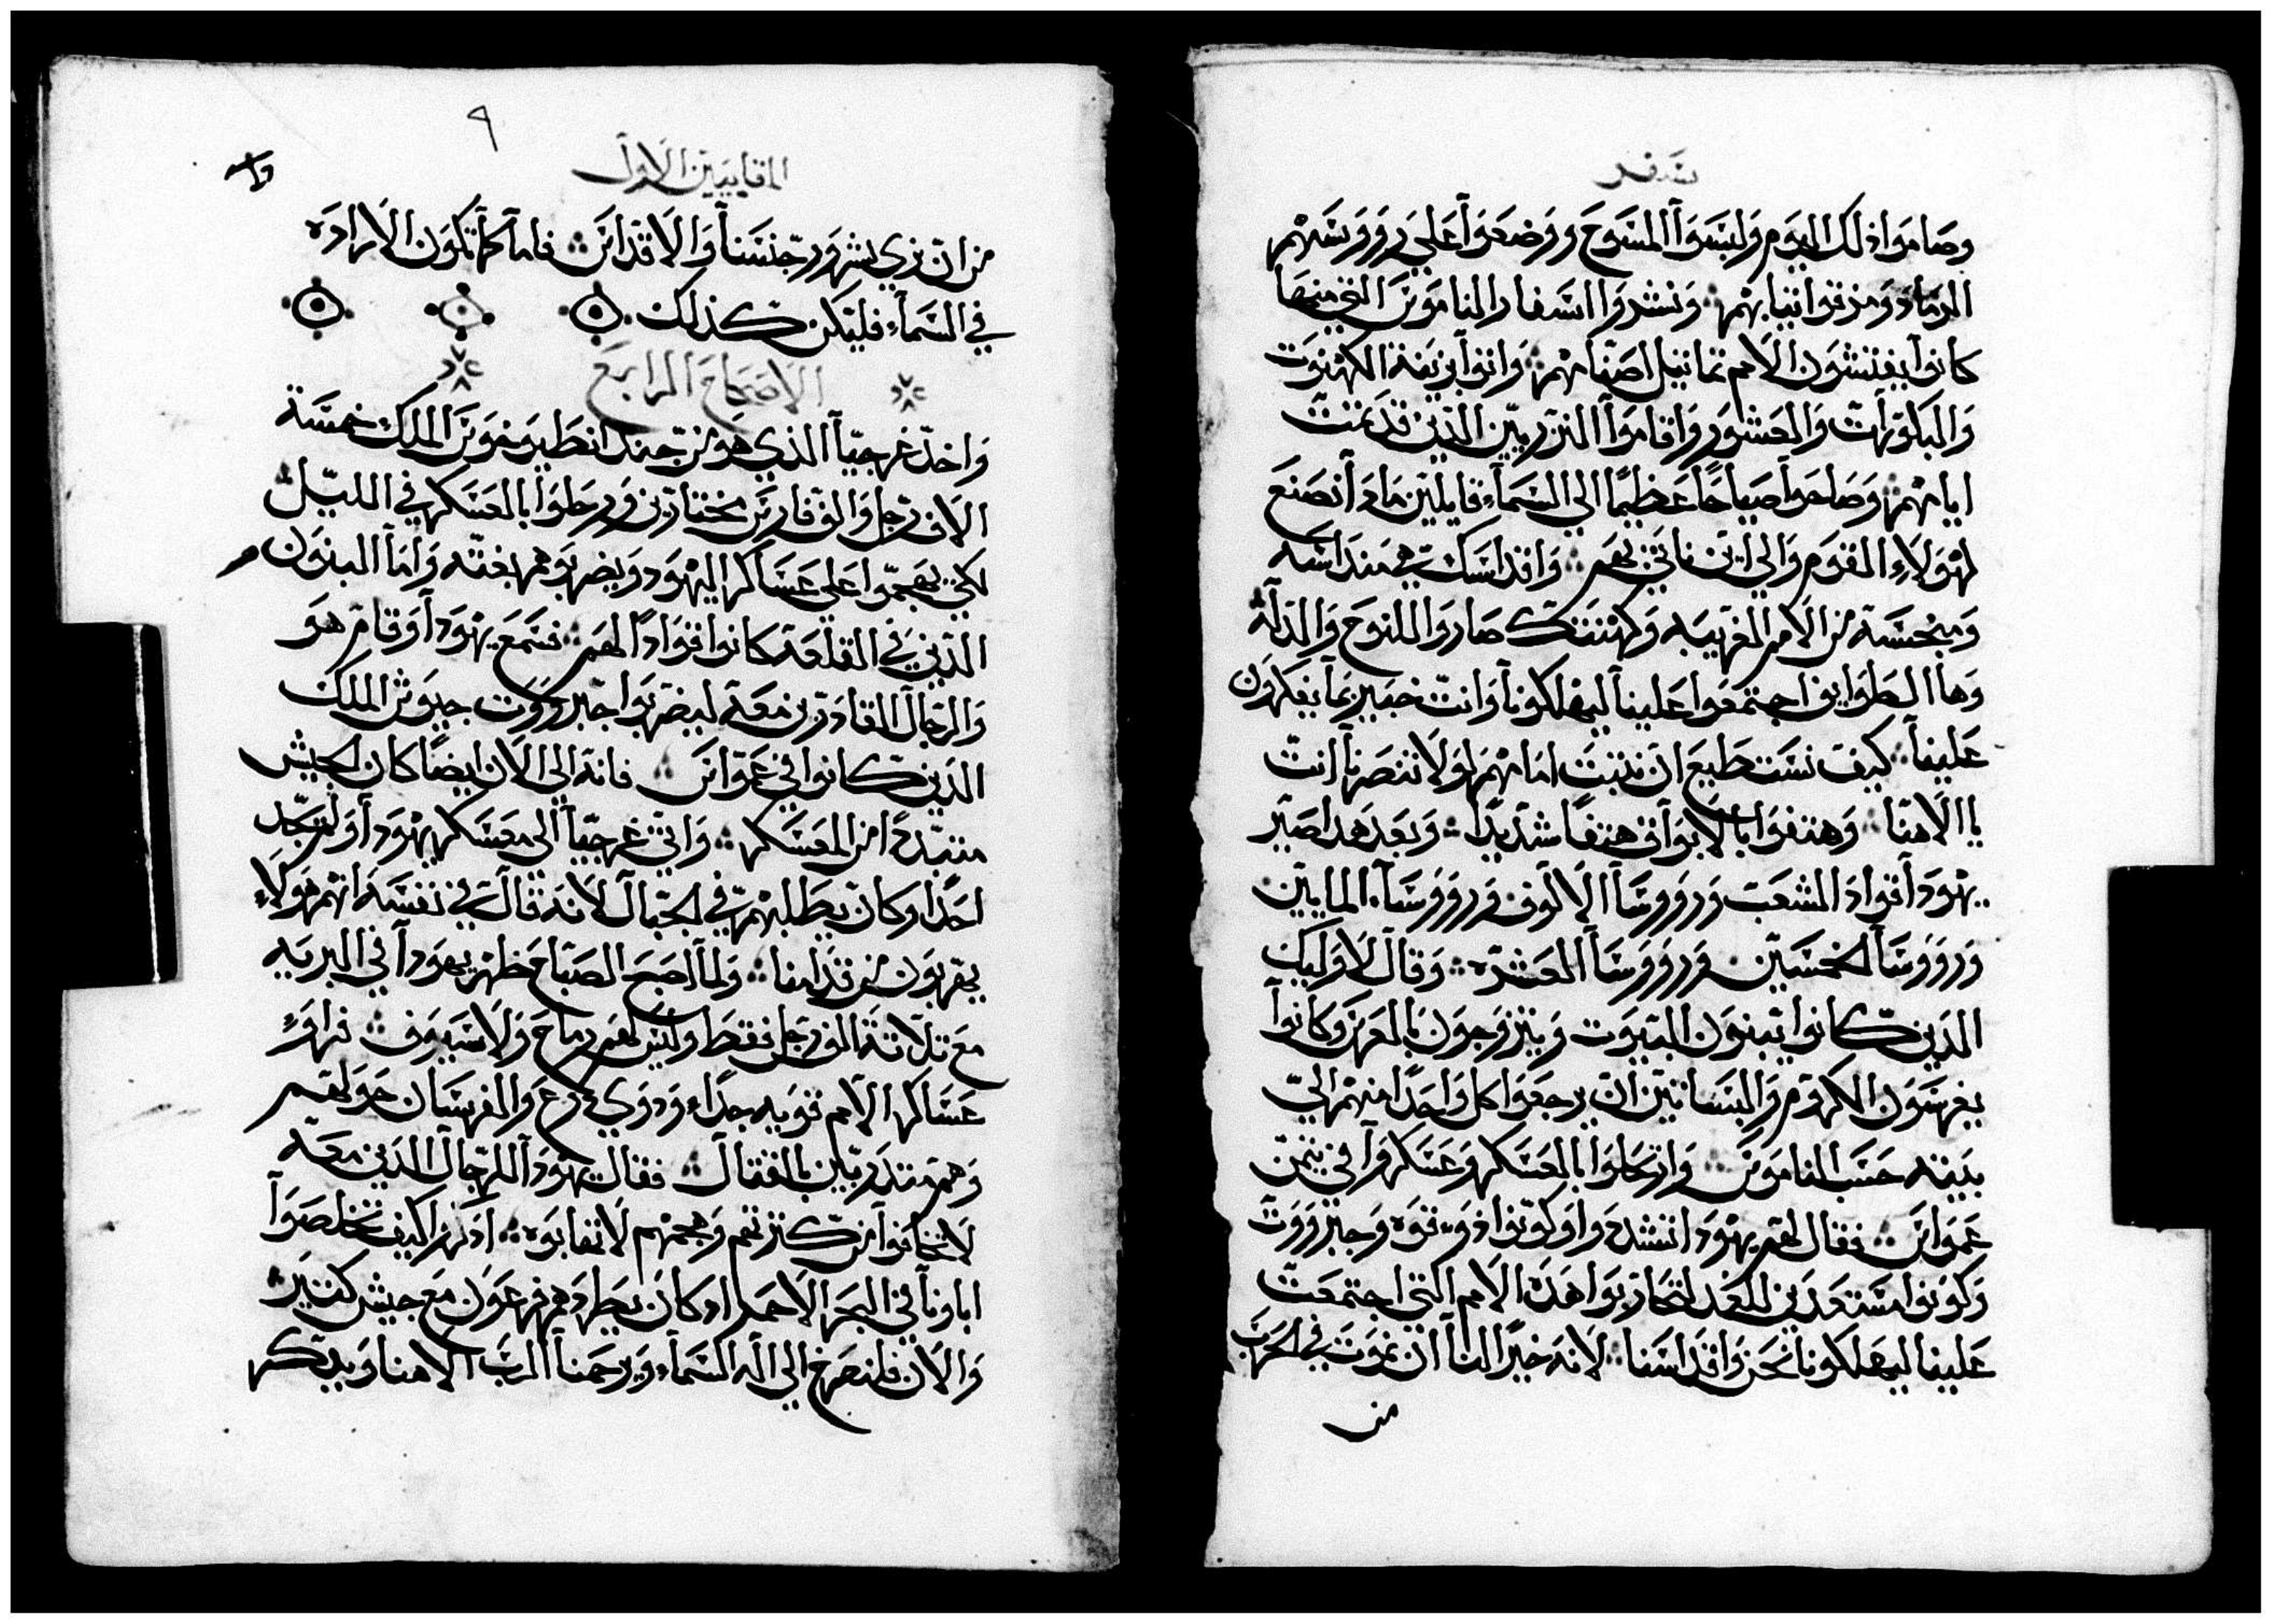 سفر
وصاموا ذلك اليوم ولبسوا المسوح ووضعوا على رووسهم
الرماد ومزقوا ثيابهم ونشروا اسفار الناموس التي منها
كانوا يفتشون الامم تماثيل اصنامهم واتوا بزينة الكهنوت
والبكورات والعشور واقاموا النزريين الذين قد تمت
ايامهم وصاحوا صياحًا عظيمًا الي السماء قايلين ماذا نصنع
لهولاء القوم والي اين ناتي بهم واقداسك هي منداسه
ومنجسة من الامم الغريبه وكهنتك صاروا للنوح والذلة
وها الطوايف اجتمعوا علينا ليهلكونا وانت خبير بما يفكرون
علينا كيف نستطيع ان نثبت امامهم لولا تنصرنا انت
يا الاهنا وهتفوا بالابواق هتفًا شديدًا وبعد هدا صير
يهودا قواد الشعب ورووسا الالوف ورووساء المايين
ورووسا الخمسين ورووسا العشرة وقال لاوليك
الذين كانوا يبنون البيوت ويتزوجون بالعرس وكانوا
يغرسون الكروم والبساتين ان يرجعوا كل واحدًا منهم الي
بيته حسب الناموس وارتحلوا بالعسكر وعسكروا في تيمن
عمواس فقال لهم يهودا تشددوا وكونوا ذوي قوه وجبرووت
وكونوا مستعدين للغد لتحاربوا هذه الامم التي اجتمعت
علينا ليهلكونا نحن واقداسنا لانه خيرًا لنا ان نموت في الحرب
من
٩
المقابيين الاول
من ان نري شرور جنسنا والاقداس فاما كما تكون الاراده
في السماء فليكن كذلك
الاصحاح الرابع
واخد غرجيا الذي هو من جند انطيوخوس الملك خمسة
الاف رجل والف فارس مختارين ورحلوا بالعسكر في الليل
لكي يهجموا على عساكر اليهود ويضربوهم بغته واما البنون
الذين في القلعة كانوا قوادًا لهم فسمع يهودا وقام هو
والرجال القادرين معه ليضربوا جبرووت جيوش الملك
الذين كانوا في عمواس فانه الي الان ايضًا كان الجيش
متبددًا من المعسكر واتي غرجيا الي معسكر يهودا ولم يجد
احدًا وكان يطلبهم في الجبال لانه قال في نفسه انهم هولاء
يهربون من قدامنا ولما اصبح الصباح ظهر يهودا في البريه
مع تلاتة الف رجل فقط وليس لهم رماح ولا سيوف فراوا
عساكر الامم قويه جداء ودوي درع والفرسان حولهم
وهم متدربين بالقتال فقال يهودا للرجال الذين معه
لا تخافوا من كترتهم وهجمتهم لا تهابوه ادكروا كيف تخلصوا
اباونا في البحر الاحمر اد كان يطردهم فرعون مع جيش كتير
والان فلنصرخ الي اله السماء ويرحمنا الرب الاهنا ويدكر